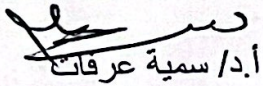 أ.د/ سمية عرفات